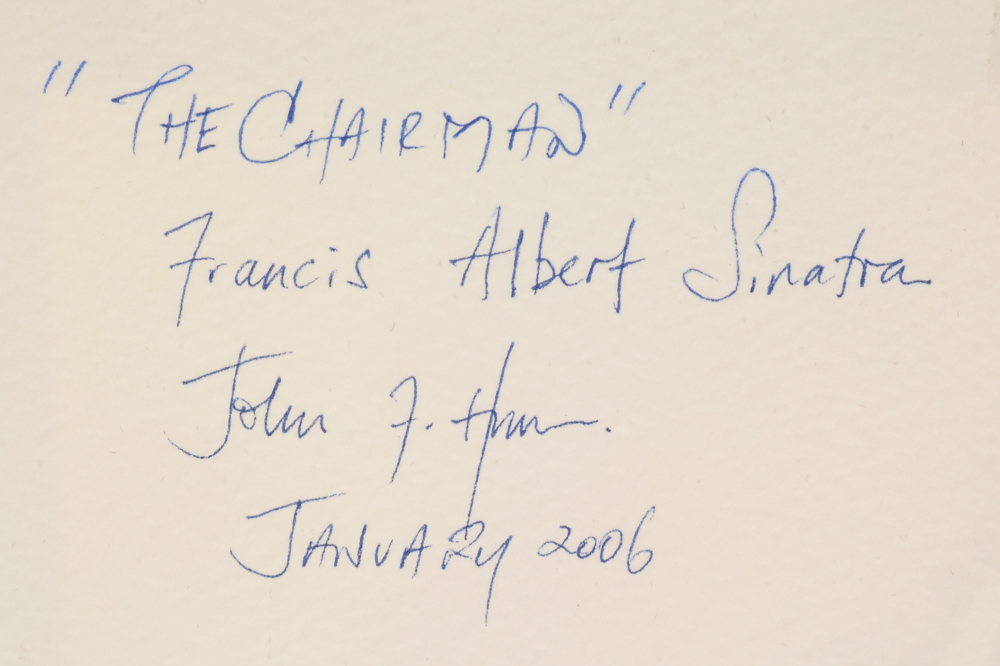 "THE CHAIRMAN"
Francis Albert Sinatra
John F.
JANUARY 2006